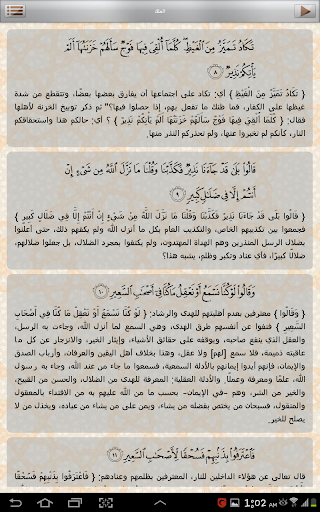 الملك
تَكَادُ تَمَيَّزُ مِنَ الْغَيْظِ كُلَّمَا أُلْقِيَ فِيهَا فَوْجٌ سَأَلَهُمْ خَزَنَتُهَا أَلَمْ
يَأْتِكُمْ نَذِيرٌ ٨
{ تَكَادُ تَمَيَّزُ مِنَ الْغَيْظِ } أي: تكاد على اجتماعها أن يفارق بعضها بعضًا، وتتقطع من شدة
غيظها على الكفار، فما ظنك ما تفعل بهم، إذا حصلوا فيها؟" ثم ذكر توبيخ الخزنة لأهلها
فقال: { كُلَّمَا أُلْقِيَ فِيهَا فَوْجٌ سَأَلَهُمْ خَزَنَتُهَا أَلَمْ يَأْتِكُمْ نَذِيرٌ } ؟ أي: حالكم هذا واستحقاقكم
النار، كأنكم لم تخبروا عنها، ولم تحذركم النذر منها.
قَالُوا بَلَى قَدْ جَاءَنَا نَذِيرٌ فَكَذَّبْنَا وَقُلْنَا مَا نَزَّلَ اللَّهُ مِن شَيْءٍ إِنْ
أَنتُمْ إِلَّا فِي ضَلَالٍ كَبِيرٍ ٩
{ قَالُوا بَلَى قَدْ جَاءَنَا نَذِيرٌ فَكَذَّبْنَا وَقُلْنَا مَا نَزَّلَ اللَّهُ مِنْ شَيْءٍ إِنْ أَنْتُمْ إِلَّا فِي ضَلَالٍ كَبِيرٍ }
فجمعوا بين تكذيبهم الخاص، والتكذيب العام بكل ما أنزل الله ولم يكفهم ذلك، حتى أعلنوا
بضلال الرسل المنذرين وهم الهداة المهتدون، ولم يكتفوا بمجرد الضلال، بل جعلوا ضلالهم،
ضلالًا كبيرًا، فأي عناد وتكبر وظلم، يشبه هذا؟
وَقَالُوا لَوْ كُنَّا نَسْمَعُ أَوْ نَعْقِلُ مَا كُنَّا فِي أَصْحَابِ السَّعِيرِ ١٠
{ وَقَالُوا } معترفين بعدم أهليتهم للهدى والرشاد: { لَوْ كُنَّا نَسْمَعُ أَوْ نَعْقِلُ مَا كُنَّا فِي أَصْحَابِ
السَّعِيرِ } فنفوا عن أنفسهم طرق الهدى، وهي السمع لما أنزل الله، وجاءت به الرسل،
والعقل الذي ينفع صاحبه، ويوقفه على حقائق الأشياء، وإيثار الخير، والانزجار عن كل ما
عاقبته ذميمة، فلا سمع [لهم] ولا عقل، وهذا بخلاف أهل اليقين والعرفان، وأرباب الصدق
والإيمان، فإنهم أيدوا إيمانهم بالأدلة السمعية، فسمعوا ما جاء من عند الله، وجاء به رسول
الله، علمًا ومعرفة وعملًا. والأدلة العقلية: المعرفة للهدى من الضلال، والحسن من القبيح،
والخير من الشر، وهم -في الإيمان- بحسب ما من الله عليهم به من الاقتداء بالمعقول
والمنقول، فسبحان من يختص بفضله من يشاء، ويمن على من يشاء من عباده، ويخذل من لا
يصلح للخير.
فَاعْتَرَفُوا بِذَنبِهِمْ فَسُحْقًا لِّأَصْحَابِ السَّعِيرِ ١١
قال تعالى عن هؤلاء الداخلين للنار، المعترفين بظلمهم وعنادهم: { فَاعْتَرَفُوا بِذَنْبِهِمْ فَسُحْقًا
1:02 AM